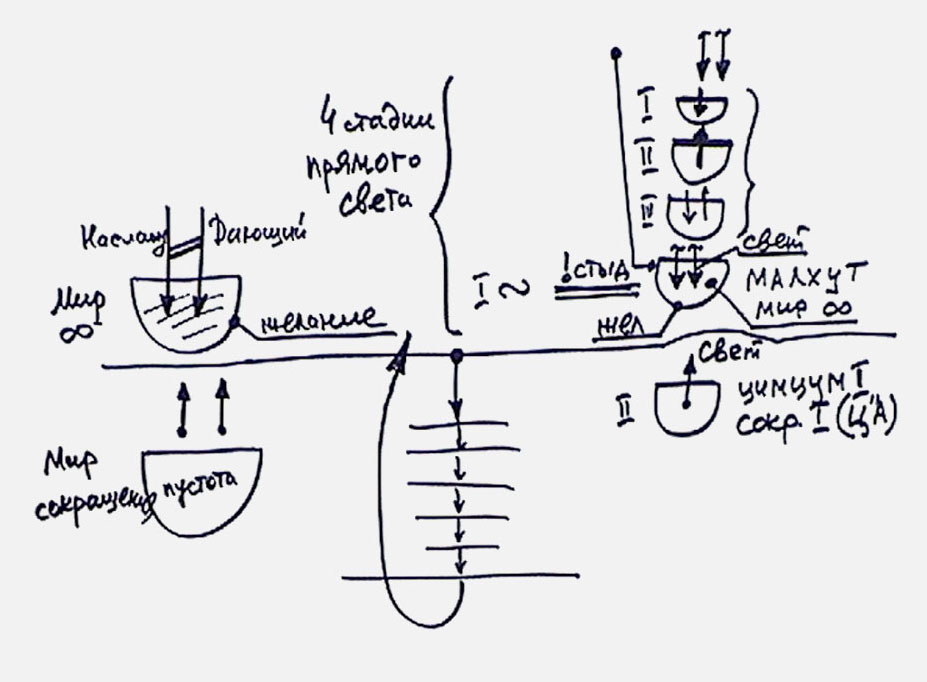 4 стадии
прямого
света
I
II
IV
Наслажд
Дающий
Мир
∞
желание
I ~
! стыд
свет
МАЛХУТ
мир ∞
жел
свет
II
цимцум I
сокр. I (Ц'А)
Мир
сокращения
пустота